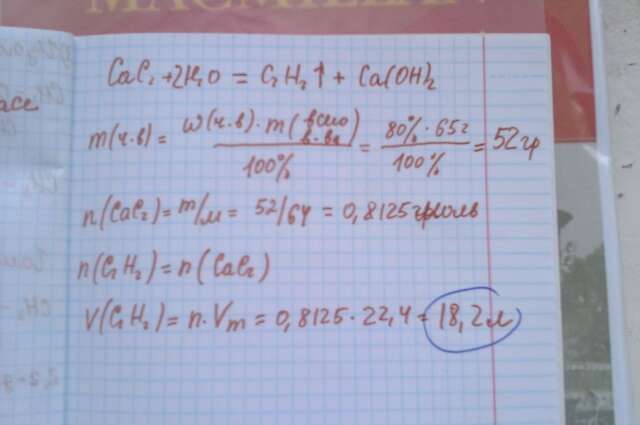 MACMILLAN
CaC₂ + 2H₂O = C₂H₂↑ + Ca(OH)₂
m(ч.в) = ω(ч.в)·m(всего в-ва) / 100% = 80%·65г / 100% = 52гр
n(CaC₂) = m/M = 52/64 = 0,8125 моль
n(C₂H₂) = n(CaC₂)
V(C₂H₂) = n·Vm = 0,8125·22,4 = 18,2л